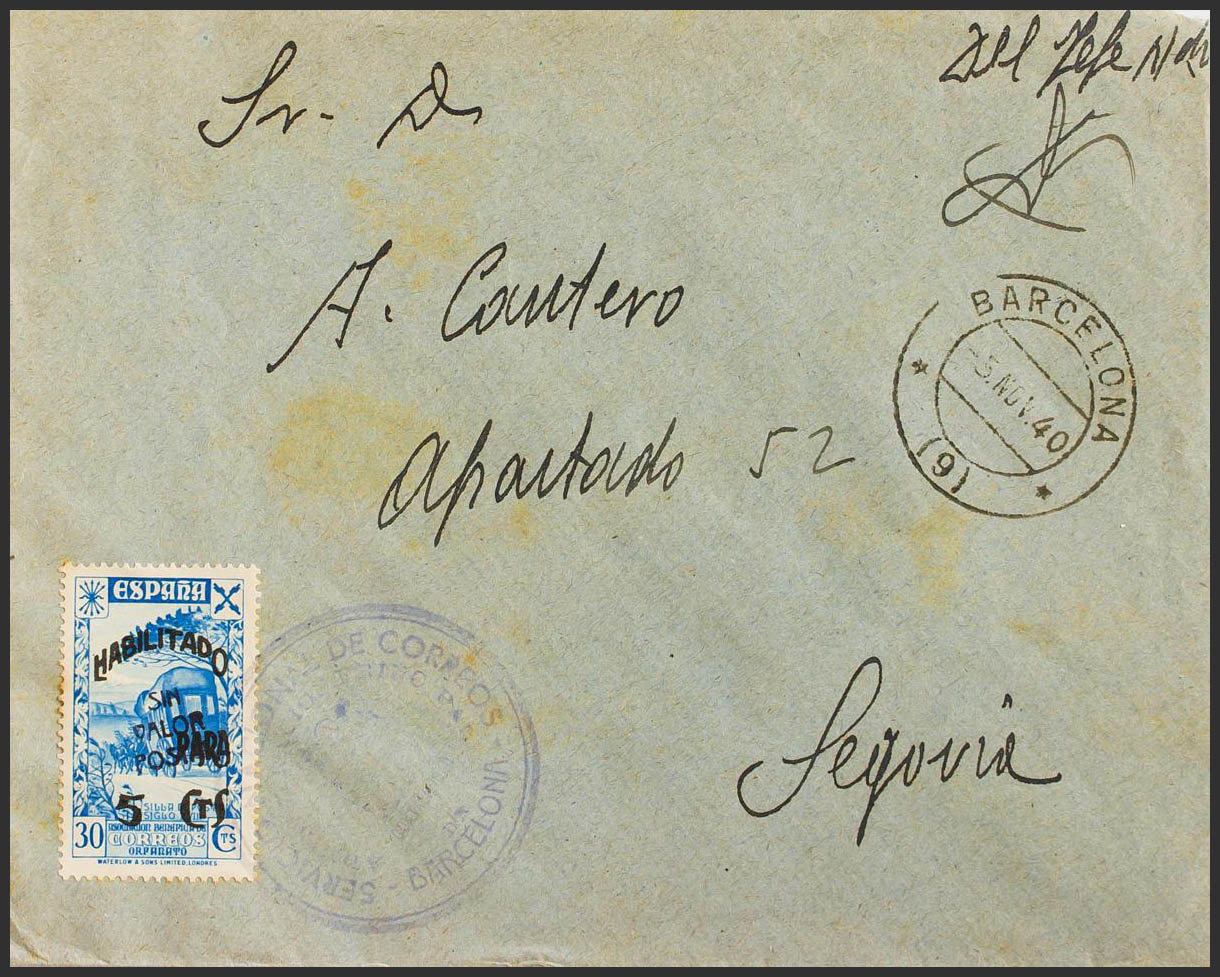 Del Jefe
Sr. D.
A. Cantero
Apartado 52
Segovia
BARCELONA
5.NOV.40
(9)
ESPAÑA
HABILITADO
SIN
VALOR
PARA
5 CTS
SILLA
SIGLO
30 ASOCIACION BENEFICA DE CTS
CORREOS
ORFANATO
WATERLOW & SONS LIMITED, LONDRES
DE CORREOS
BARCELONA